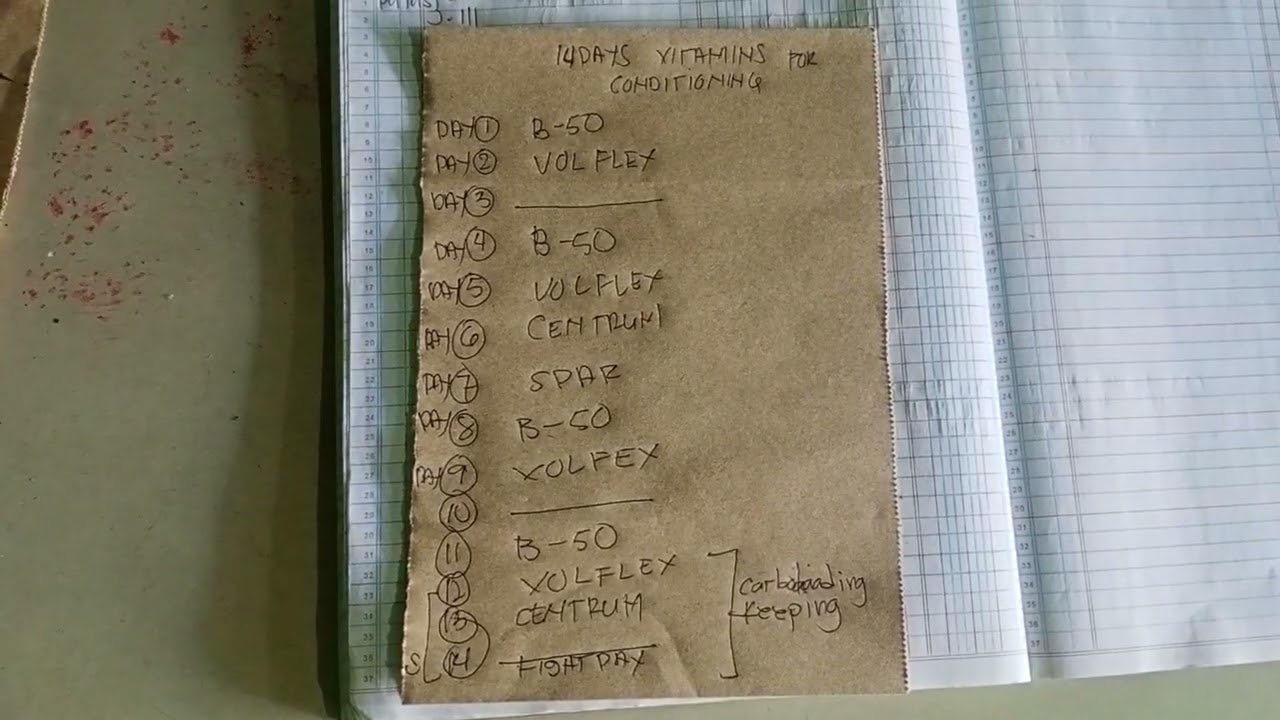 J-111
14DAYS VITAMINS FOR
CONDITIONING
DAY 1 B-50
DAY 2 VOLFLEX
DAY 3
DAY 4 B-50
DAY 5 VOLFLEX
DAY 6 CENTRUM
DAY 7 SPAR
DAY 8 B-50
DAY 9 VOLFEX
10
11 B-50
12 VOLFLEX
13 CENTRUM
S 14 FIGHT DAY
carboloading
keeping